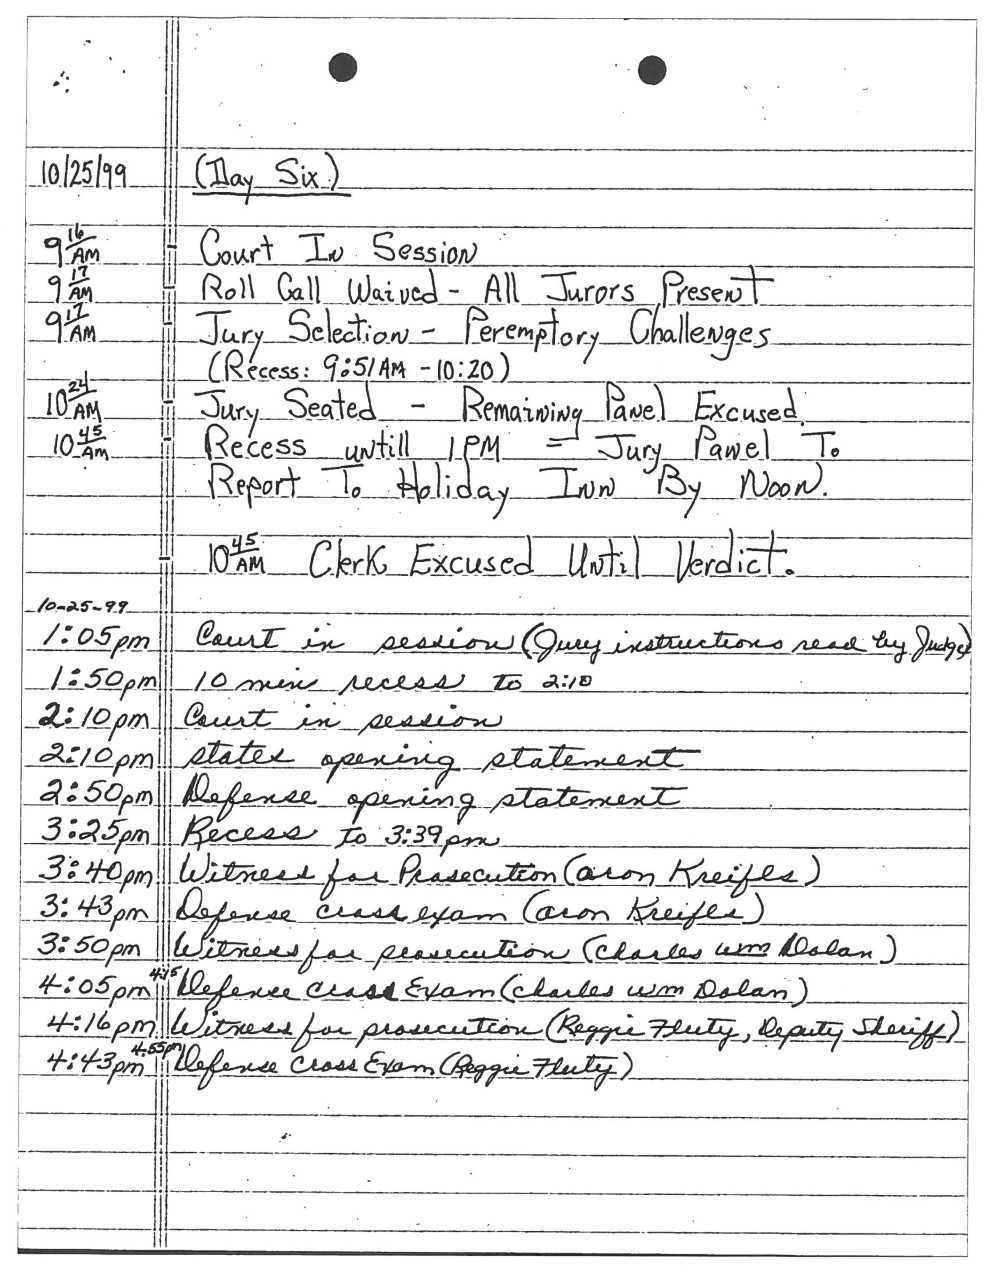 10/25/99 (Day Six)
9 16 AM - Court In Session
9 17 AM - Roll Call Waived - All Jurors Present
9 17 AM - Jury Selection - Peremptory Challenges
(Recess: 9:51 AM - 10:20)
10 24 AM - Jury Seated - Remaining Panel Excused.
10 45 AM - Recess untill 1 PM = Jury Panel To
Report To Holiday Inn By Noon.
- 10 45 AM Clerk Excused Until Verdict.
10-25-99
1:05pm Court in session (Jury instructions read by Judge)
1:50pm 10 min recess to 2:10
2:10pm Court in session
2:10pm states opening statement
2:50pm Defense opening statement
3:25pm Recess to 3:39pm
3:40pm Witness for Prosecution (aron Kreifles)
3:43pm Defense cross exam (aron Kreifls)
3:50pm Witness for prosecution (Charles wm Dolan)
4:05pm 4:15 Defense cross Exam (Charles wm Dolan)
4:16pm Witness for prosecution (Reggie Fluty, Deputy Sheriff)
4:43pm 4:55pm Defense Cross Exam (Reggie Fluty)